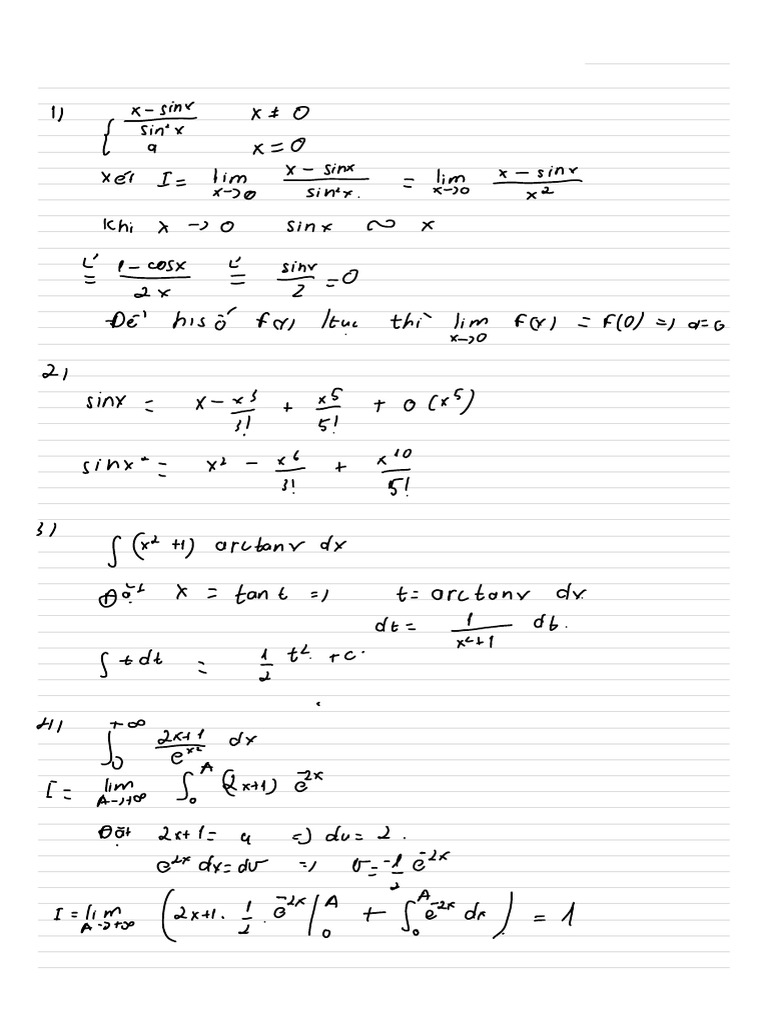 1) { x - sinx / sin²x x ≠ 0
a x = 0
xét I = lim x→0 x - sinx / sin²x. = lim x→0 x - sinx / x²
khi x → 0 sinx ∾ x
L' = 1 - cosx / 2x L' = sinx / 2 = 0
Để hiso f(x) ltuc thì lim x→0 f(x) = f(0) => a=0
2)
sinx = x - x³/3! + x⁵/5! + o(x⁵)
sinx² = x² - x⁶/3! + x¹⁰/5!
3)
∫ (x² + 1) arctanx dx
Đặt x = tant => t = arctanx dx
dt = 1 / x²+1 dt.
∫ t dt = 1/2 t² + c.
4)
∫₀^+∞ 2x+1 / e^x2 dx
I = lim A→+∞ ∫₀^A (2x+1) e^-2x
Đặt 2x+1 = u => du = 2.
e^2x dx = dv => v = -1/2 e^-2x
I = lim A→+∞ (2x+1. 1/2 . e^-2x |₀^A + ∫₀^A e^-2x dx) = 1